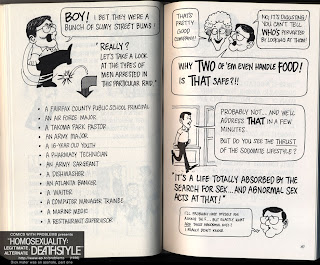 BOY! I BET THEY WERE A
BUNCH OF SLIMY STREET BUMS!
REALLY?
LET'S TAKE A LOOK
AT THE TYPES OF
MEN ARRESTED IN
THIS PARTICULAR RAID:
• A FAIRFAX COUNTY PUBLIC SCHOOL PRINCIPAL
• AN AIR FORCE MAJOR
• A TAKOMA PARK PASTOR
• AN ARMY MAJOR
• A 16-YEAR OLD YOUTH
• A PHARMACY TECHNICIAN
• AN ARMY SARGEANT
• A DISHWASHER
• AN ATLANTA BANKER
• A WAITER
• A COMPUTER MANAGER TRAINEE
• A MARINE MEDIC
• A RESTAURANT SUPERVISOR
COMICS WITH PROBLEMS presents
"HOMOSEXUALITY:
LEGITIMATE
ALTERNATE
DEATHSTYLE"
THAT'S
PRETTY
GOOD
COMPANY!
NO, IT'S DISGUSTING!
YOU CAN'T TELL
WHO'S PERVERTED
BY LOOKING AT THEM!
WHY TWO OF 'EM EVEN HANDLE FOOD!
IS THAT SAFE?!!
PROBABLY NOT... AND WE'LL
ADDRESS THAT IN A FEW
MINUTES.
BUT DO YOU SEE THE THRUST
OF THE SODOMITE LIFESTYLE?
"IT'S A LIFE TOTALLY ABSORBED BY THE
SEARCH FOR SEX... AND ABNORMAL SEX
ACTS AT THAT!"
I'LL PROBABLY HATE MYSELF FOR
ASKING THIS... BUT EXACTLY WHAT
ARE THOSE ABNORMAL ACTS?
I REALLY DON'T KNOW.